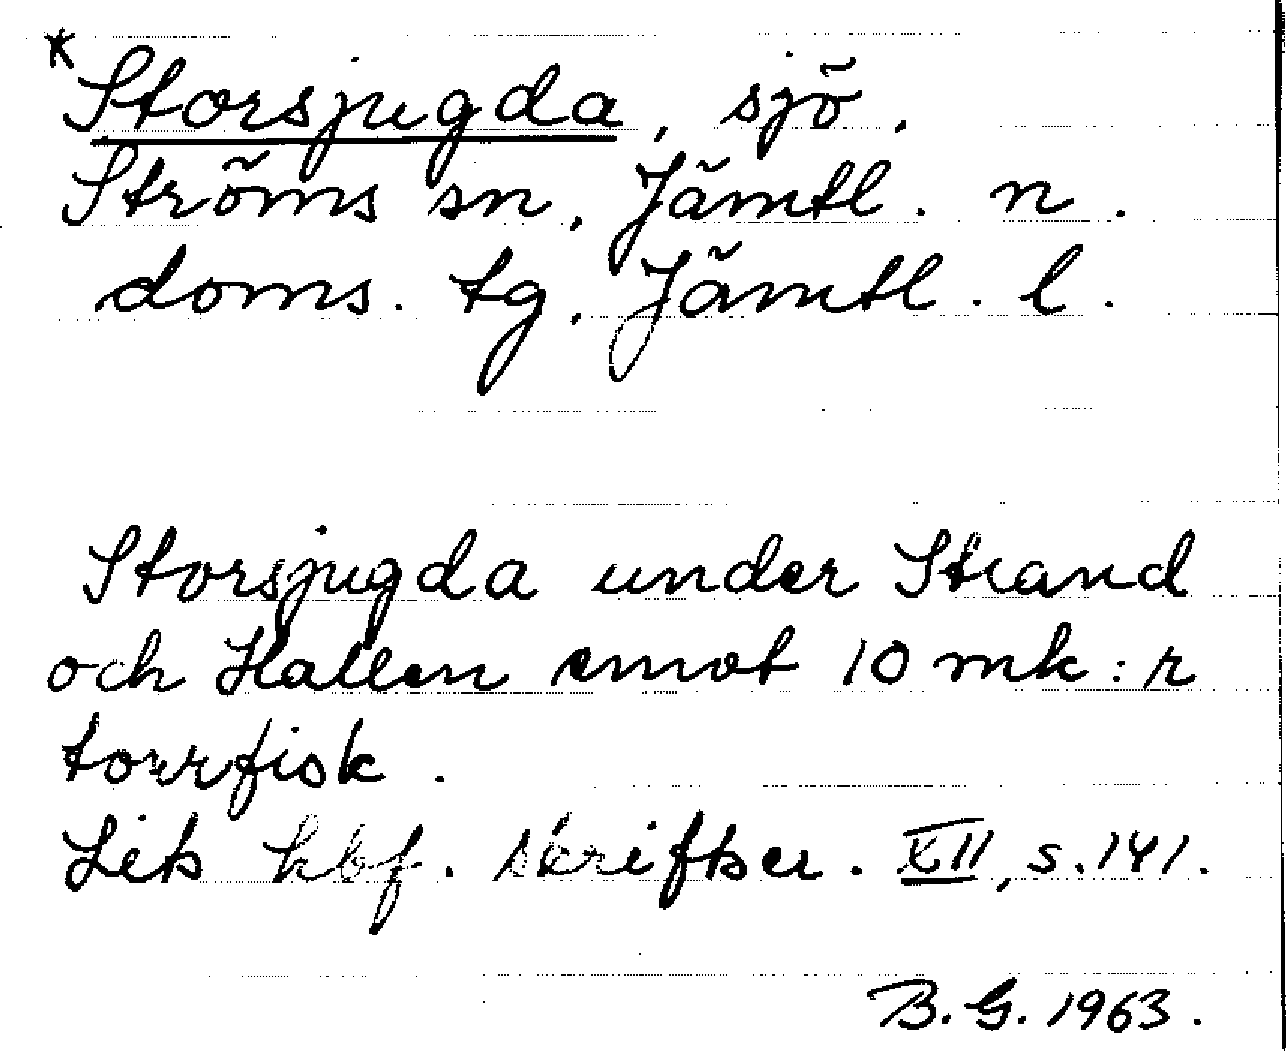 *Storsjugda, sjö.
Ströms sn, Jämtl. n.
doms. tg, Jämtl. l.
Storsjugda under Strand
och Hallen emot 10 mk:r
torrfisk.
hbf. skriftser. XII, s. 141.
B. G. 1963.